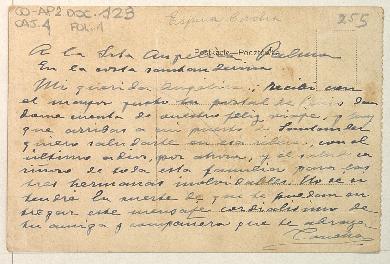 CO-AP2 DOC. 123
CAJ. 1 FOL. 1
255
Postkarte — Postcard
A la Srta Angélica Palma
En la costa santanderina
Mi querida Angélica: Recibí con
el mayor gusto su postal de
dome cuenta de vuestro feliz viaje, y hoy
que arribas a un puerto de Santander
quiero saludarte en esa ribera, con el
último adiós, por ahora, y el saludo ca
riñoso de toda esta familia para las
tres hermanas inolvidables. No se si
tendré la suerte de que te puedan en
tregar este mensaje cordialísimo de
tu amiga y compañera que te abraza
Concha